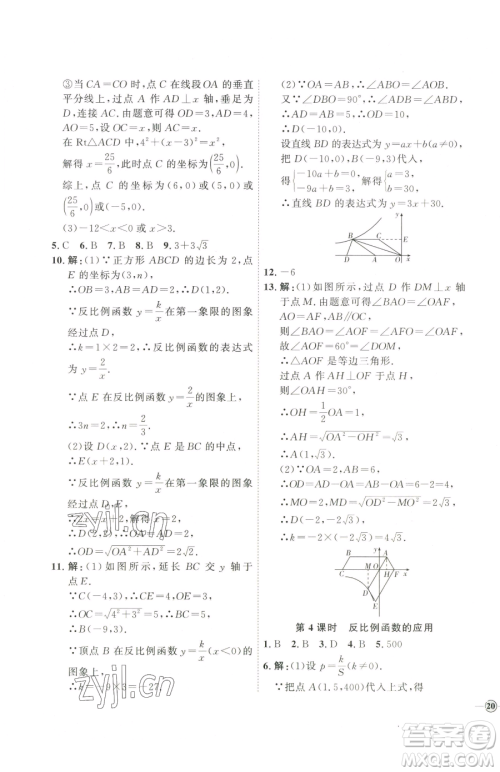 ③当 CA=CO 时，点 C 在线段 OA 的垂直
平分线上，过点 A 作 AD⊥x 轴，垂足为
D，连接 AC. 由题意可得 OD=3，AD=4，
AO=5，设 OC=x，则 CD=x-3.
在 Rt△ACD 中，4²+(x-3)²=x²，
解得 x=25/6，此时点 C 的坐标为(25/6,0).
综上，点 C 的坐标为(6,0)或(5,0)或
(25/6,0)或(-5,0).
(3)-12<x<0 或 x>3.
5. C 6. B 7. B 8. B 9. 3+3√3
10. 解：(1)∵正方形 ABCD 的边长为 2，点
E 的坐标为(3,n)，
∴OB=3，AB=AD=2，
∴OA=1，∴D(1,2).
∵反比例函数 y=k/x 在第一象限的图象
经过点 D，
∴k=1×2=2，∴反比例函数的表达式
为 y=2/x.
∵点 E 在反比例函数 y=2/x 的图象上，
∴3n=2，∴n=2/3.
(2)设 D(x,2)，∵点 E 是 BC 的中点，
∴E(x+2,1).
∵反比例函数 y=k/x 在第一象限的图象
经过点 D，E，
∴2x=x+2，解得 x=2，
∴D(2,2)，∴OA=AD=2，
∴OD=√(OA²+AD²)=2√2.
11. 解：(1)如图所示，延长 BC 交 y 轴于
点 E.
∵C(-4,3)，∴CE=4，OE=3，
∴OC=√(4²+3²)=5.
∵四边形 OABC 为菱形，∴BC=OC=5，
∴B(-9,3).
∵顶点 B 在反比例函数 y=k/x (x<0)的
图象上，
∴k=-9×3=-27.
(2)∵OA=AB，∴∠ABO=∠AOB.
∵∠BOD=90°，∴AD=AB=5，
∴D(-10,0).
设直线 BD 的表达式为 y=ax+b(a≠0).
把 D(-10,0)，B(-9,3)代入，
得{-10a+b=0, -9a+b=3, 解得{a=3, b=30.
∴直线 BD 的表达式为 y=3x+30.
y
B
C
E
D
A
O
x
12. -6
13. 解：(1)如图所示，过点 D 作 DM⊥x 轴
于点 M. 由题意可知
∠BAO=∠OAF，AO=AF，AB∥OC，
则∠BAO=∠AOF=∠AFO=∠OAF，
∴∠AOF=60°，
∴△AOF 是等边三角形.
过点 A 作 AH⊥OF 于点 H，
∴OH=1/2 OA=1，
∴AH=√(OA²-OH²)=√3，
∴A(1,√3).
(2)∵AD=6，AO=2，
∴OD=AD-OA=6-2=4，
∵∠DOM=60°，
∴MO=2，
∴MD=√(OD²-MO²)=2√3，
∴D(-2,-2√3)，
∴k=-2×(-2√3)=4√3.
第 4 课时 反比例函数的应用
1. B 2. B 3. D 4. B 5. 500
6. 解：(1)设 p=k/S (k≠0)，
∵把点 A(1.5,400)代入上式，得
20
zyjl.cn
答案圈
MXQE.COM